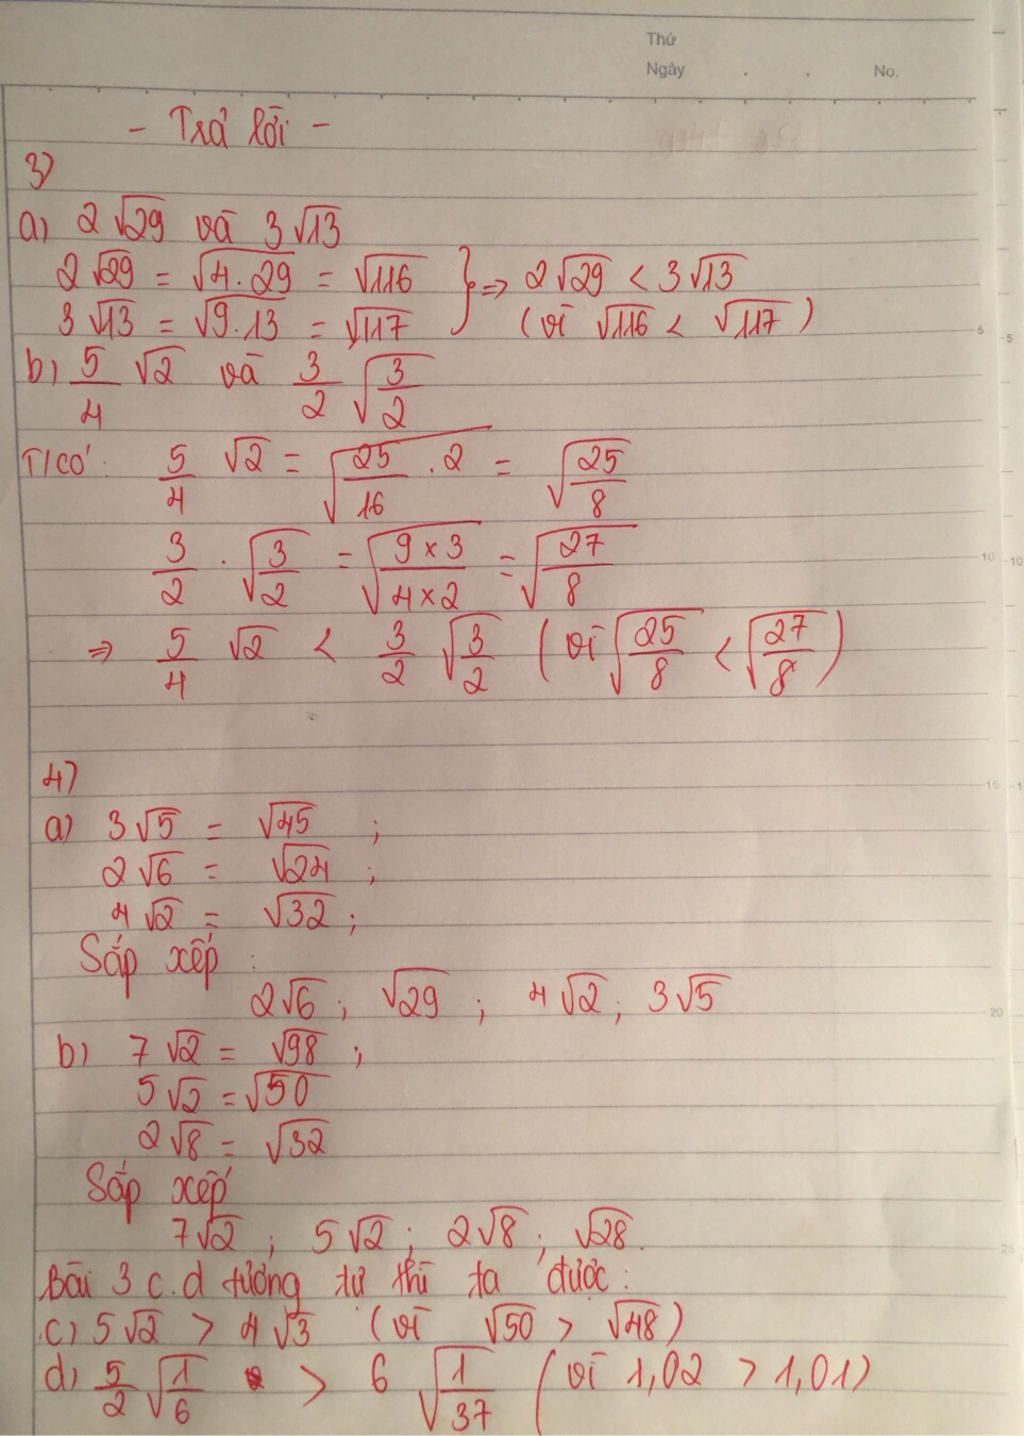 Thứ
Ngày . . No.
- Trả lời -
3)
a) 2√29 và 3√13
2√29 = √4.29 = √116 } => 2√29 < 3√13
3√13 = √9.13 = √117 (vì √116 < √117)
b) 5/4 √2 và 3/2 √3/2
T/có: 5/4 √2 = √25/16 . 2 = √25/8
3/2 . √3/2 = √9×3/4×2 = √27/8
=> 5/4 √2 < 3/2 √3/2 (vì √25/8 < √27/8)
4)
a) 3√5 = √45 ;
2√6 = √24 ;
4√2 = √32 ;
Sắp xếp :
2√6 ; √29 ; 4√2 ; 3√5
b) 7√2 = √98 ;
5√2 = √50
2√8 = √32
Sắp xếp
7√2 ; 5√2 ; 2√8 ; √28.
Bài 3 c.d tương tự thì ta được :
c) 5√2 > 4√3 (vì √50 > √48)
d) 5/2 √1/6 > 6 √1/37 (vì 1,02 > 1,01)
5
5
10
10
15
1
20
25